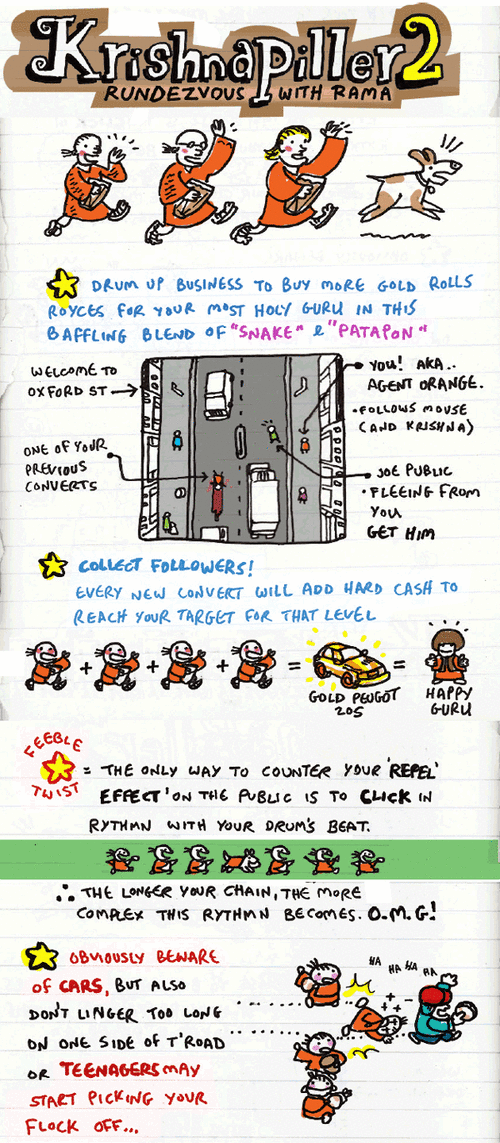 KrishnaPiller2
RUNDEZVOUS WITH RAMA
DRUM UP BUSINESS TO BUY MORE GOLD ROLLS
ROYCES FOR YOUR MOST HOLY GURU IN THIS
BAFFLING BLEND OF "SNAKE" & "PATAPON"
WELCOME TO
OXFORD ST
ONE OF YOUR
PREVIOUS
CONVERTS
YOU! AKA..
AGENT ORANGE.
•FOLLOWS MOUSE
(AND KRISHNA)
JOE PUBLIC
•FLEEING FROM
YOU
GET HIM
COLLECT FOLLOWERS!
EVERY NEW CONVERT WILL ADD HARD CASH TO
REACH YOUR TARGET FOR THAT LEVEL
+ + + = =
GOLD PEUGOT
205
HAPPY
GURU
FEEBLE
TWIST
= THE ONLY WAY TO COUNTER YOUR 'REPEL
EFFECT' ON THE PUBLIC IS TO CLICK IN
RYTHMN WITH YOUR DRUM'S BEAT.
∴ THE LONGER YOUR CHAIN, THE MORE
COMPLEX THIS RYTHMN BECOMES. O.M.G!
OBVIOUSLY BEWARE
OF CARS, BUT ALSO
DON'T LINGER TOO LONG
ON ONE SIDE OF T'ROAD
OR TEENAGERS MAY
START PICKING YOUR
FLOCK OFF...
HA HA HA HA